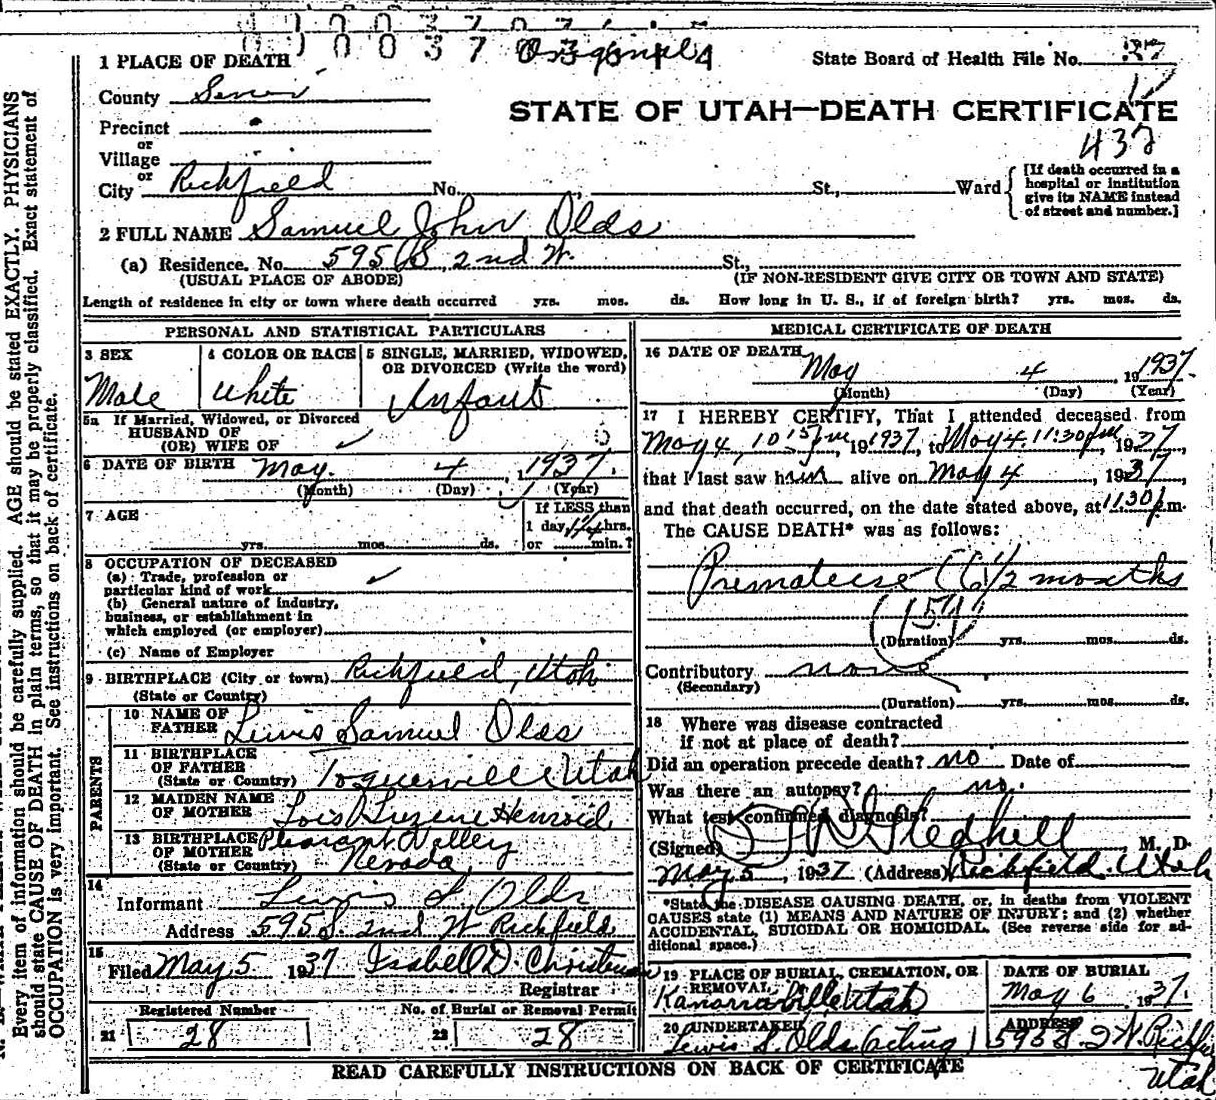 Original
1 PLACE OF DEATH
State Board of Health File No. 37
County Sevier
STATE OF UTAH—DEATH CERTIFICATE
437
Precinct
or
Village
or
City Richfield No. St., Ward
[If death occurred in a
hospital or institution
give its NAME instead
of street and number.]
2 FULL NAME Samuel John Olds
(a) Residence. No. 595 S. 2nd W. St.,
(USUAL PLACE OF ABODE) (IF NON-RESIDENT GIVE CITY OR TOWN AND STATE)
Length of residence in city or town where death occurred yrs. mos. ds. How long in U. S., if of foreign birth? yrs. mos. ds.
PERSONAL AND STATISTICAL PARTICULARS
3 SEX
Male
4 COLOR OR RACE
White
5 SINGLE, MARRIED, WIDOWED,
OR DIVORCED (Write the word)
Infant
5a If Married, Widowed, or Divorced
HUSBAND OF
(OR) WIFE OF
6 DATE OF BIRTH May 4, 1937.
(Month) (Day) (Year)
7 AGE
yrs. mos. ds.
If LESS than
1 day, 1¼ hrs.
or min.?
8 OCCUPATION OF DECEASED
(a) Trade, profession or
particular kind of work
(b) General nature of industry,
business, or establishment in
which employed (or employer)
(c) Name of Employer
9 BIRTHPLACE (City or town) Richfield, Utah
(State or Country)
PARENTS
10 NAME OF
FATHER Lewis Samuel Olds
11 BIRTHPLACE
OF FATHER
(State or Country) Toquerville Utah
12 MAIDEN NAME
OF MOTHER Lois Henroid
13 BIRTHPLACE Pleasant Valley
OF MOTHER
(State or Country) Nevada
14
Informant Lewis S. Olds
Address 595 S. 2nd W Richfield
15
Filed May 5 1937 Isabel D. Christensen
Registrar
Registered Number
21 28
No. of Burial or Removal Permit
22 28
MEDICAL CERTIFICATE OF DEATH
16 DATE OF DEATH
May 4, 1937.
(Month) (Day) (Year)
17 I HEREBY CERTIFY, That I attended deceased from
May 4, 10 15 pm, 1937, to May 4 11:30 pm, 1937,
that I last saw him alive on May 4, 1937,
and that death occurred, on the date stated above, at 11:30 p.m.
The CAUSE DEATH* was as follows:
Premature (6 1/2 months
(Duration) yrs. mos. ds.
Contributory none
(Secondary)
(Duration) yrs. mos. ds.
18 Where was disease contracted
if not at place of death?
Did an operation precede death? no Date of
Was there an autopsy? no.
What test confirmed diagnosis?
(Signed) Gledhill M. D.
May 5, 1937 (Address) Richfield. Utah
*State the DISEASE CAUSING DEATH, or, in deaths from VIOLENT
CAUSES state (1) MEANS AND NATURE OF INJURY; and (2) whether
ACCIDENTAL, SUICIDAL OR HOMICIDAL. (See reverse side for ad-
ditional space.)
19 PLACE OF BURIAL, CREMATION, OR
REMOVAL
Kanarraville Utah
DATE OF BURIAL
May 6 1937.
20 UNDERTAKER
Lewis S. Olds (acting)
ADDRESS
595 S. 2 W. Richfield
Utah
READ CAREFULLY INSTRUCTIONS ON BACK OF CERTIFICATE
Every item of information should be carefully supplied. AGE should be stated EXACTLY. PHYSICIANS
should state CAUSE OF DEATH in plain terms, so that it may be properly classified. Exact statement of
OCCUPATION is very important. See instructions on back of certificate.